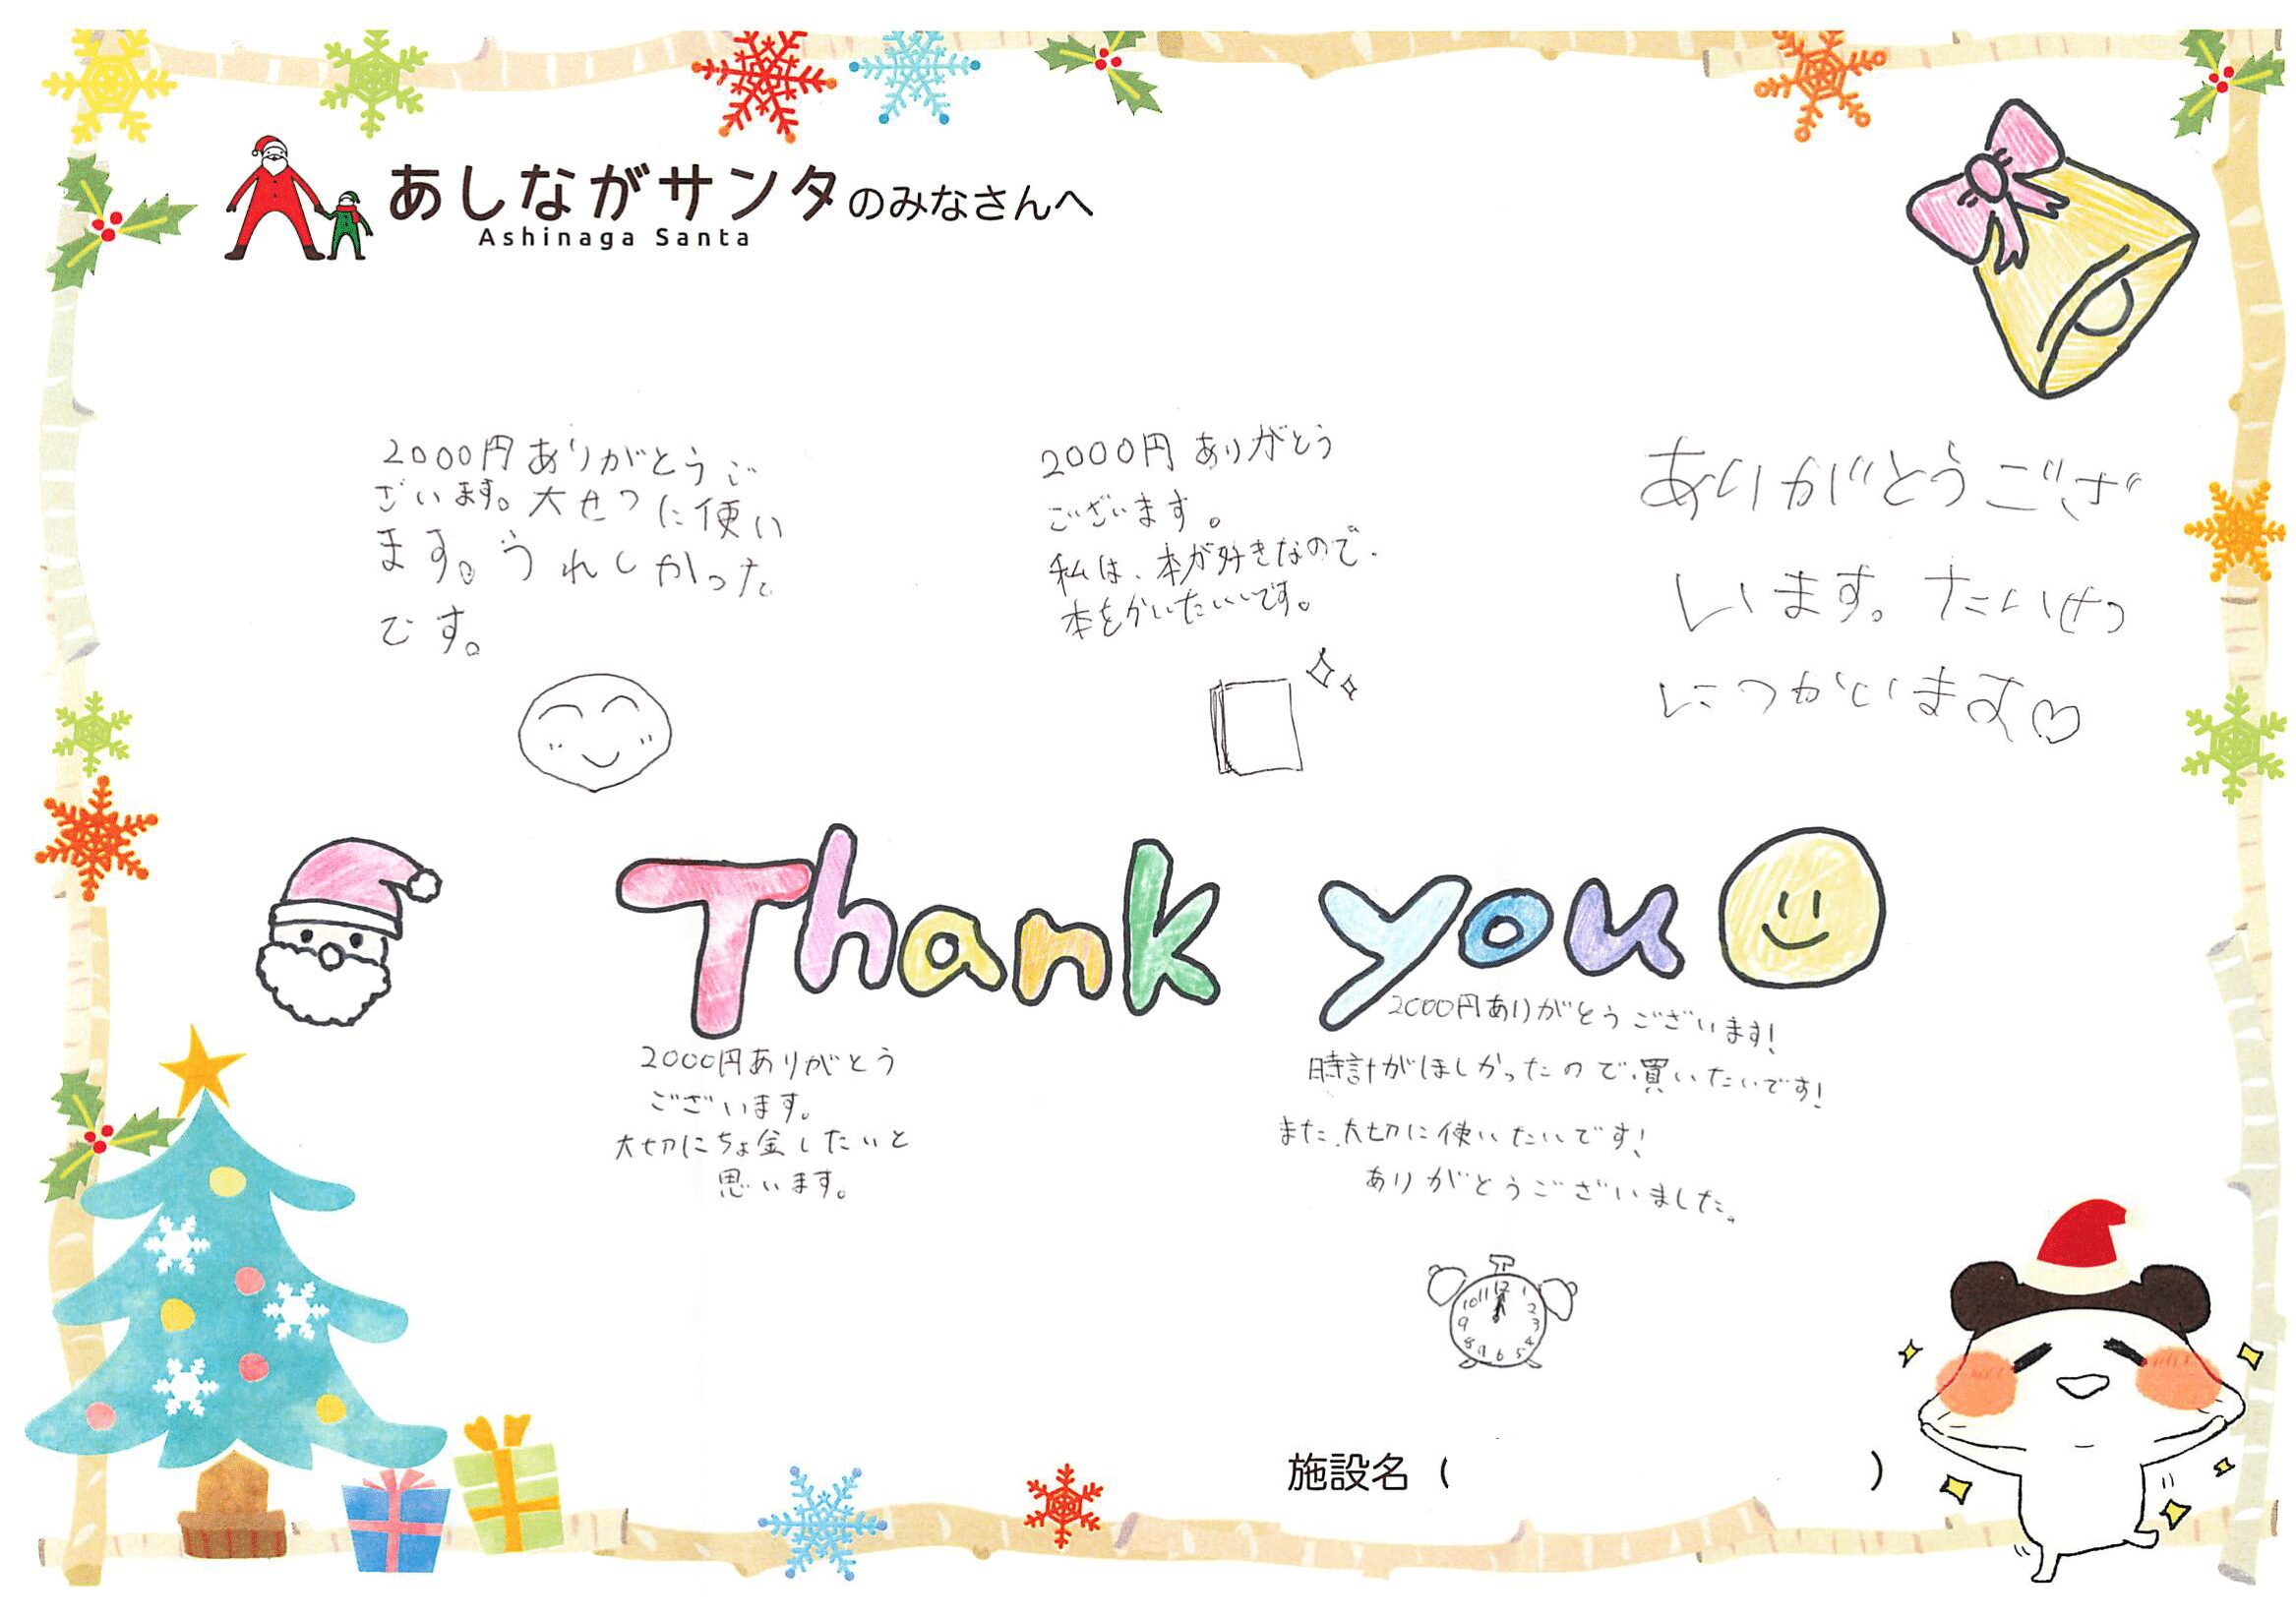 あしながサンタのみなさんへ
Ashinaga Santa
2000円ありがとうご
ざいます。大せつに使い
ます。うれしかった
です。
2000円ありがとう
ございます。
私は、本が好きなので、
本をかいたいいです。
ありがとうござ
います。たいせつ
につかいます♡
Thank you
2000円ありがとう
ございます。
大切にちょ金したいと
思います。
2000円ありがとうございます!
時計がほしかったので、買いたいです!
また、大切に使いたいです!
ありがとうございました。
12
11 1
10 2
9 3
8 4
5
6
施設名 ( )